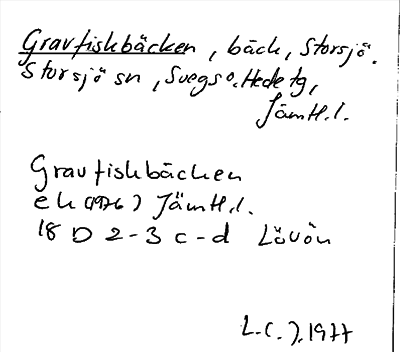 Gravfiskbäcken, bäck, Storsjö.
Storsjö sn, Svegs o. Hede tg,
Jämtl. l.
Gravfiskbäcken
ek (1976) Jämtl. l.
18 D 2-3 c-d Lövön
L. C. J. 1977